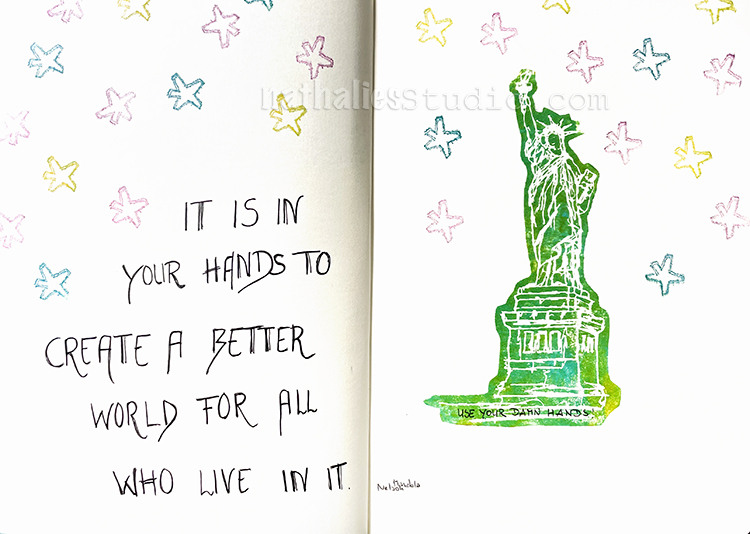 nathaliesstudio.com
IT IS IN
YOUR HANDS TO
CREATE A BETTER
WORLD FOR ALL
WHO LIVE IN IT.
USE YOUR DAMN HANDS!
Nelson Mandela